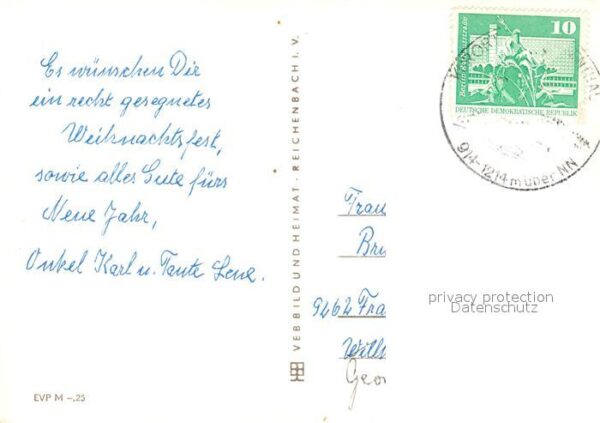 Es wünschen Dir
ein recht gesegnetes
Weihnachtsfest,
sowie alles Gute fürs
Neue Jahr,
Onkel Karl u. Tante Lene.
EVP M –,25
VEB BILD UND HEIMAT · REICHENBACH I. V.
10
DEUTSCHE DEMOKRATISCHE REPUBLIK
914-1214 m über NN
Frau
Bru
9262 Fra
Geor
privacy protection
Datenschutz